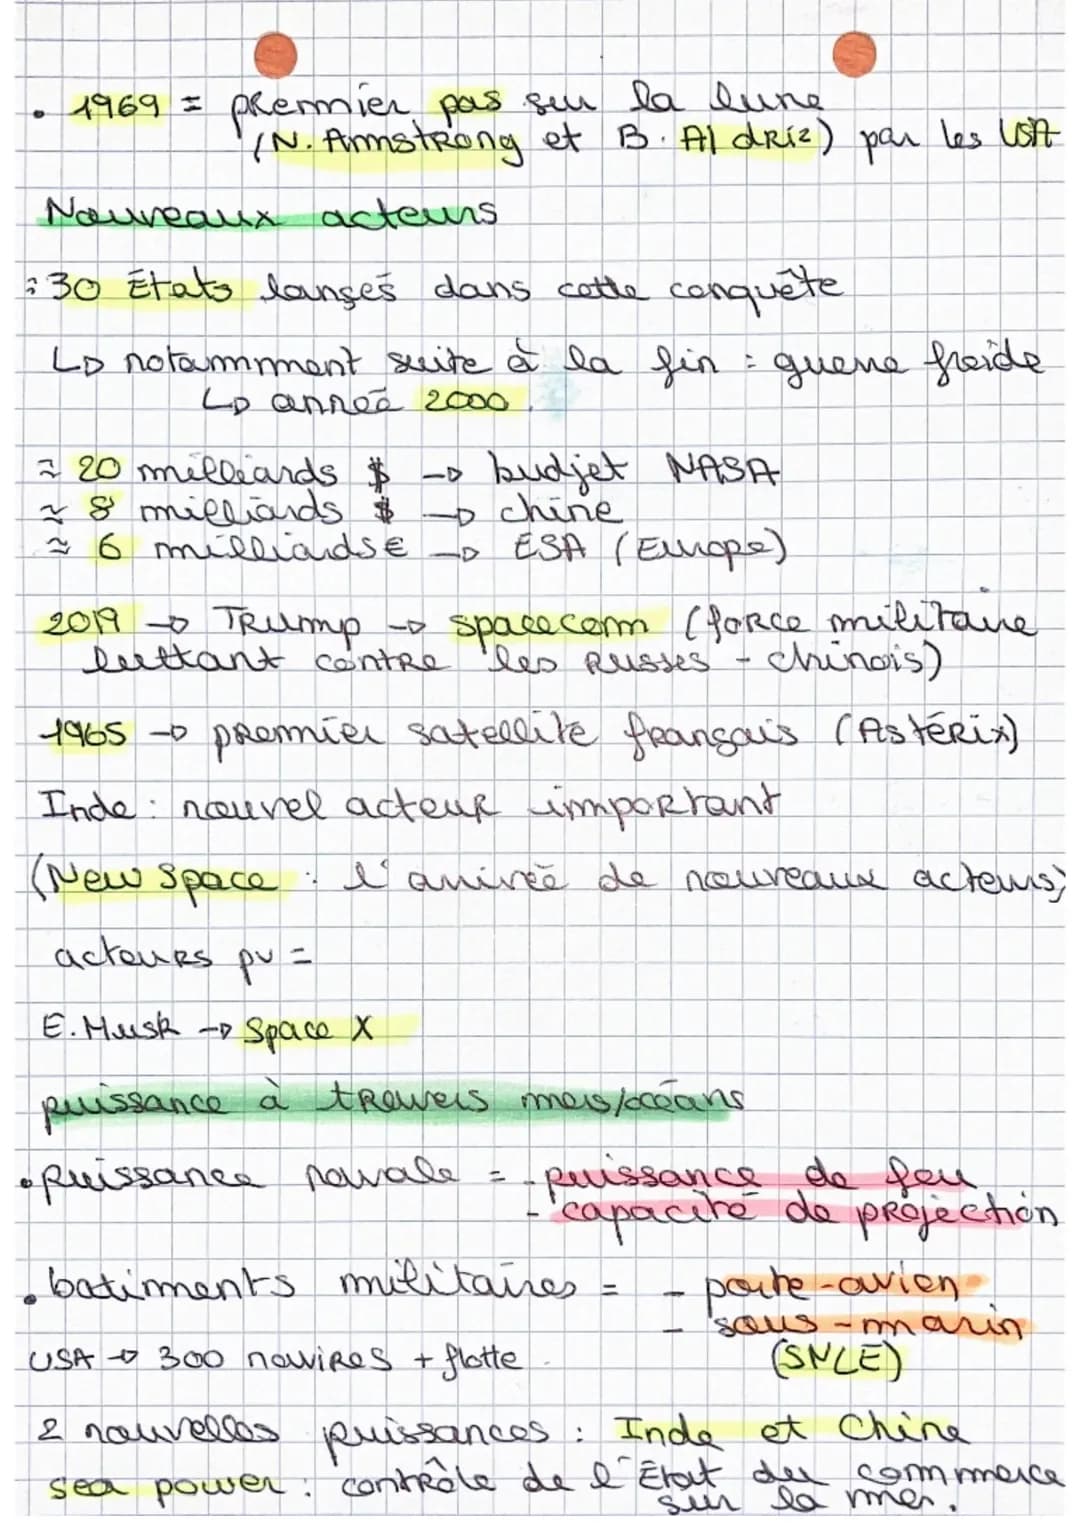 . 1969 = premier pas sur la lune
(N. Armstrong et B. Aldriz) par les USA
Nouveaux acteurs
: 30 États lançés dans cette conquête
↳ notamment suite à la fin : guerre froide
↳ année 2000.
≈ 20 milliards $ → budjet NASA
≈ 8 milliards $ → chine
≈ 6 milliards € → ESA (Europe)
2019 → Trump → spacecom (force militaire
luttant contre les russes - chinois)
1965 → premier satellite français (Astérix)
Inde : nouvel acteur important
(New Space : l'arrivée de nouveaux acteurs)
acteurs pv =
E. Musk → Space X
puissance à travers mers/océans
. puissance navale = - puissance de feu
- capacité de projection
. batiments militaires = - porte-avion
- sous-marin
USA → 300 navires + flotte. (SNLE)
2 nouvelles puissances : Inde et Chine
sea power : contrôle de l'État du commerce
sur la mer.